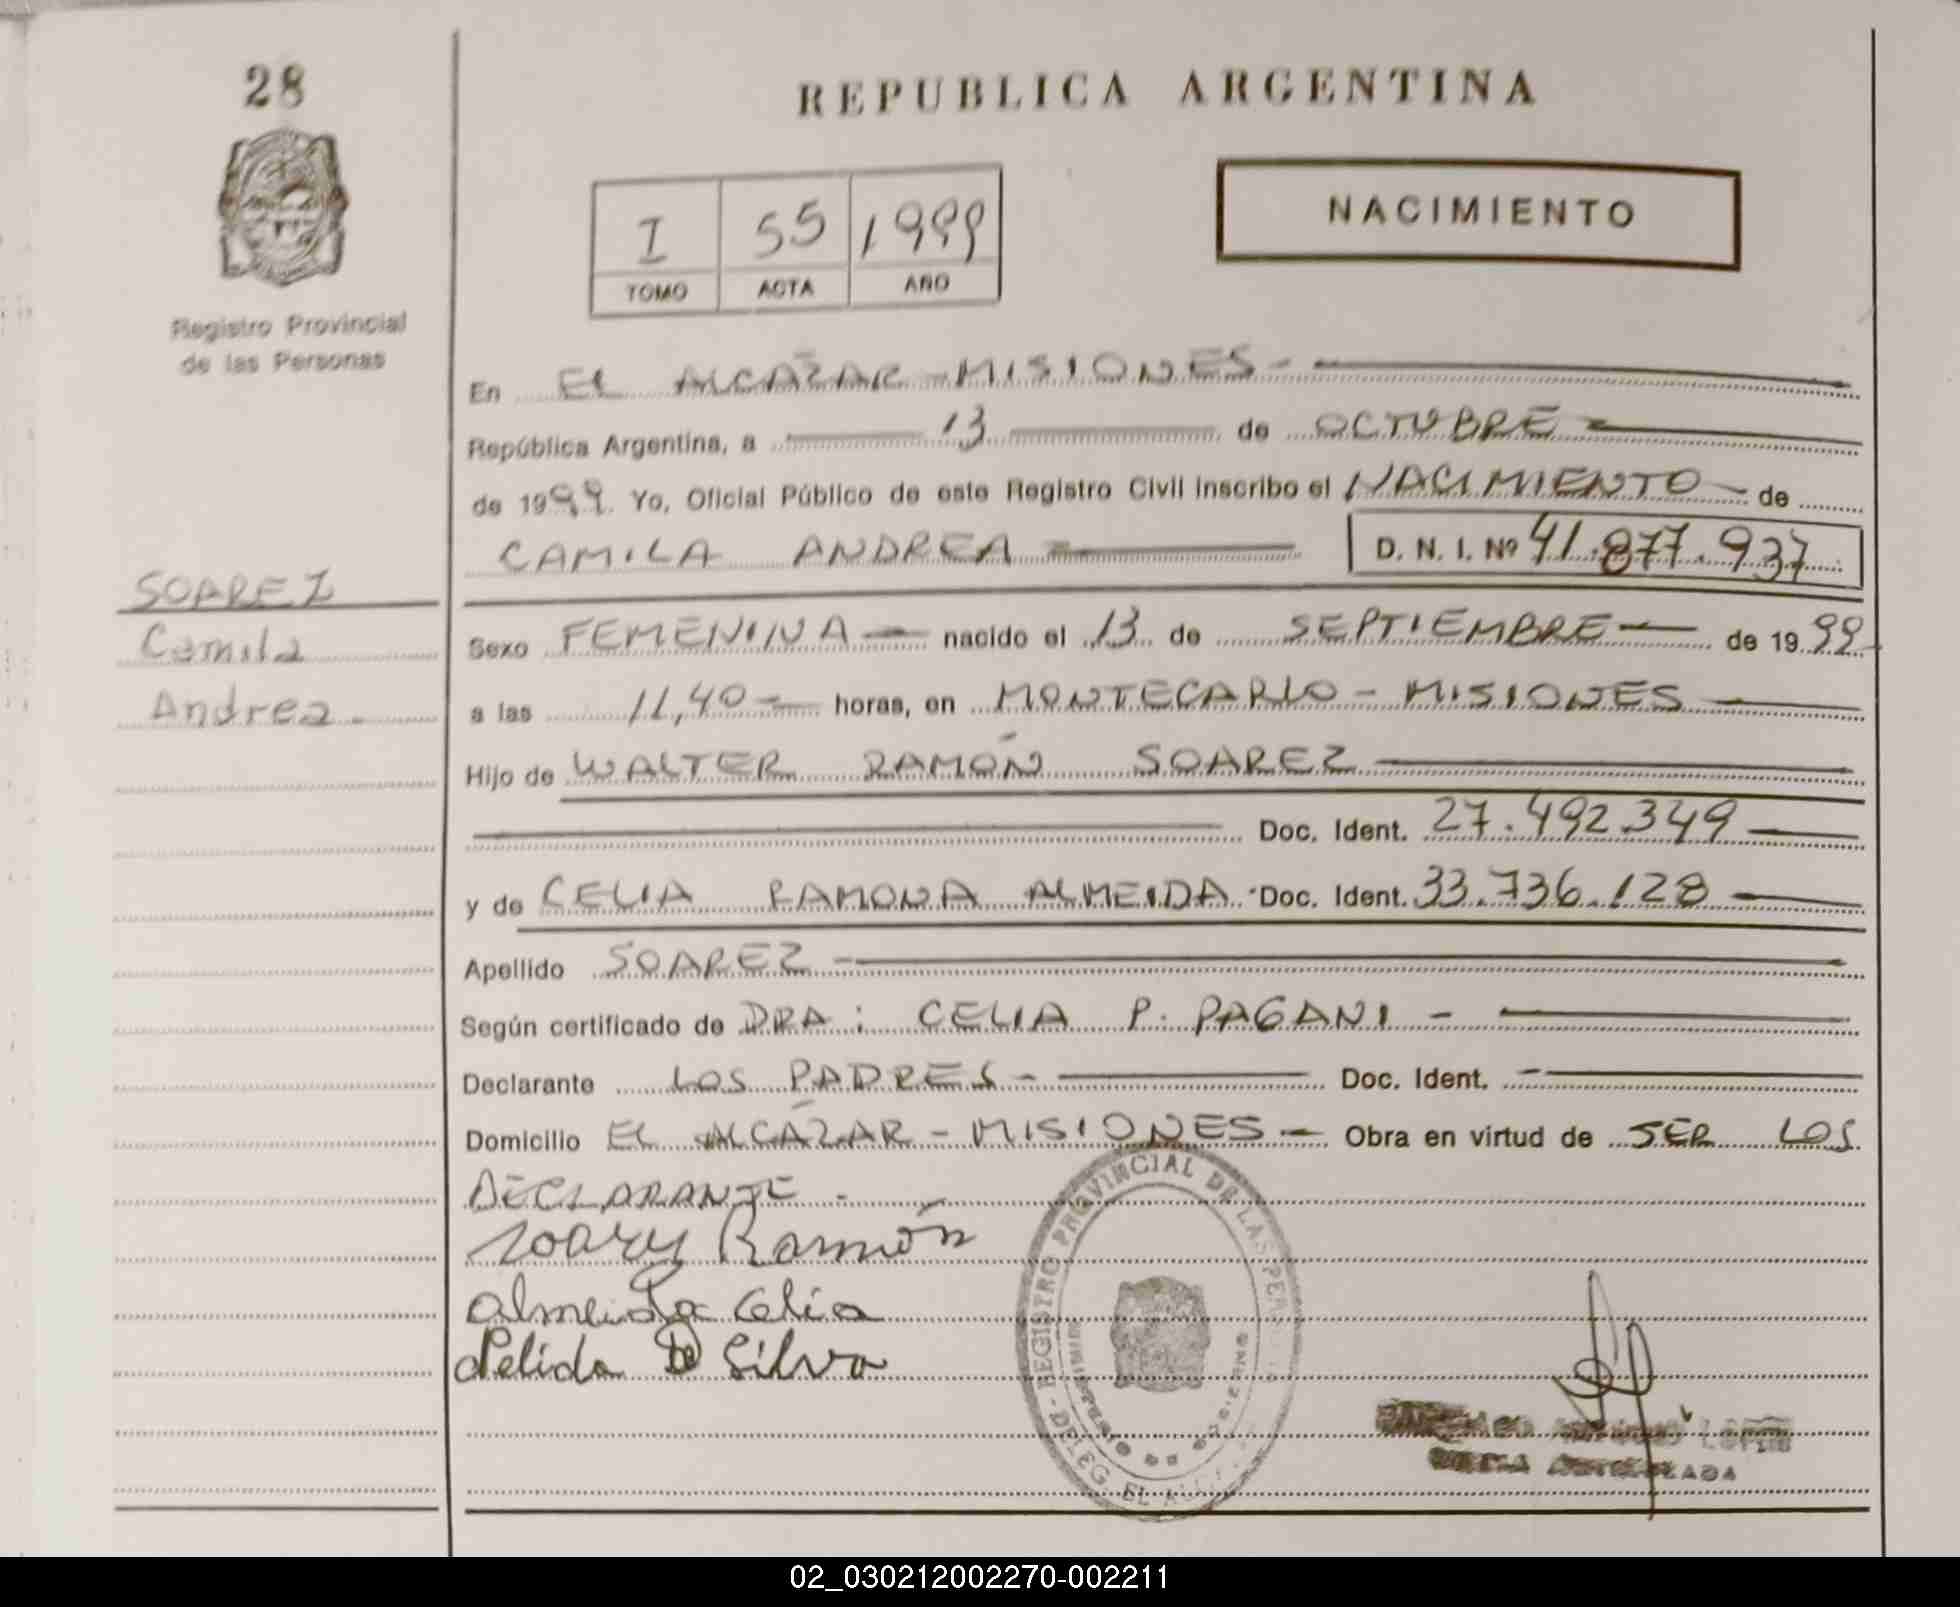 28
REPUBLICA ARGENTINA
I 55 1999
TOMO ACTA AÑO
NACIMIENTO
Registro Provincial
de las Personas
En EL ALCÁZAR - MISIONES -
República Argentina, a 13 de OCTUBRE
de 1999. Yo, Oficial Público de este Registro Civil inscribo el NACIMIENTO de
CAMILA ANDREA D. N. I. Nº 41.877.937
SOAREZ
Camila
Andrea.
Sexo FEMENINA nacido el 13 de SEPTIEMBRE de 1999
a las 11,40 horas, en MONTECARLO - MISIONES
Hijo de WALTER RAMÓN SOAREZ
Doc. Ident. 27.492.349
y de CELIA RAMONA ALMEIDA Doc. Ident. 33.736.128
Apellido SOAREZ
Según certificado de DRA: CELIA P. PAGANI -
Declarante LOS PADRES - Doc. Ident. -
Domicilio EL ALCÁZAR - MISIONES - Obra en virtud de SER LOS
DECLARANTE -
Ramón
Almeida Celia
Delida De Silva
REGISTRO PROVINCIAL DE LAS
DELEG. EL
02_030212002270-002211